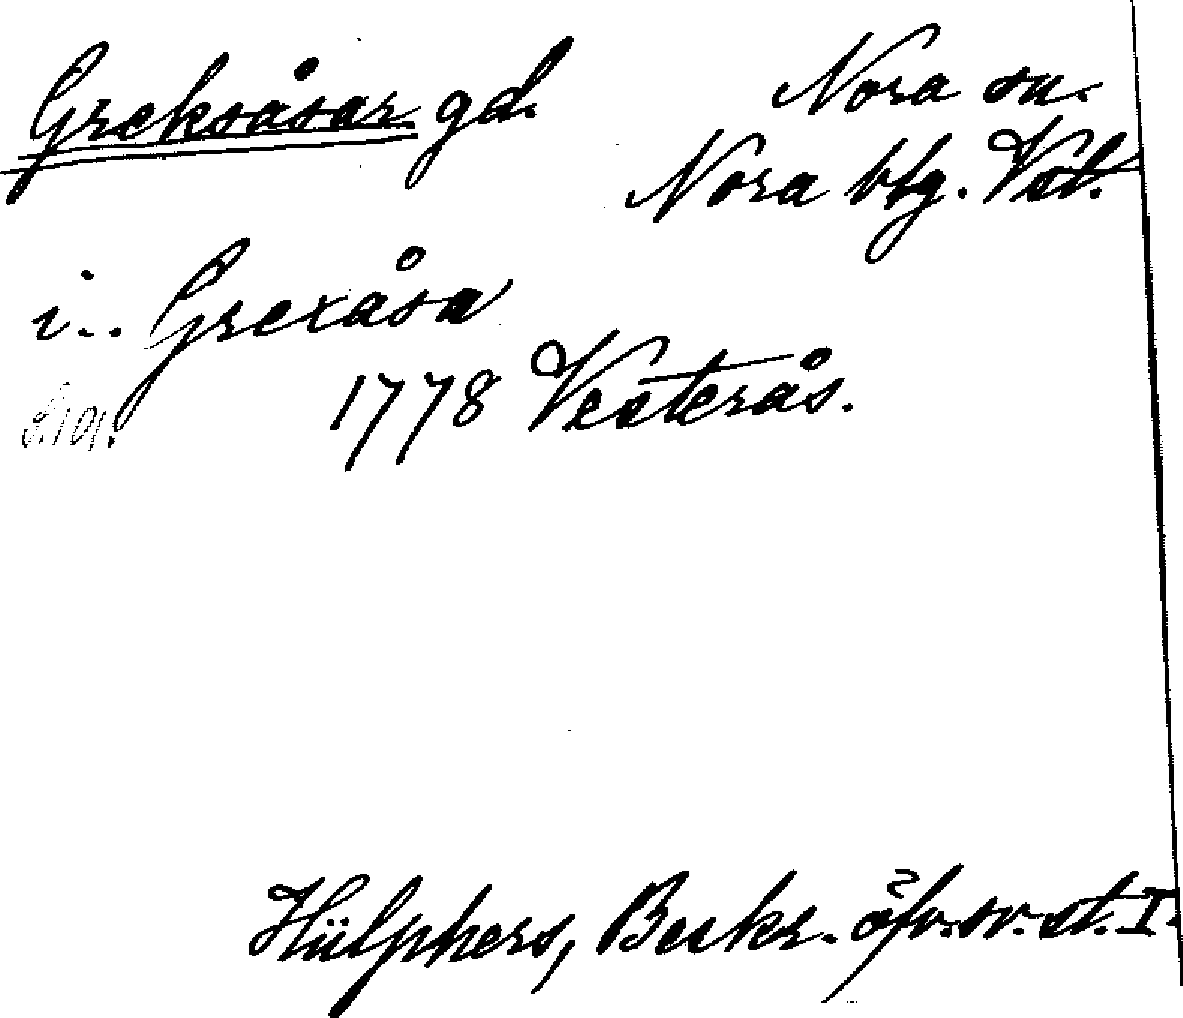 Greksåsar gd. Nora sn.
Nora btg. Vstl.
i.. Grexåsa
1778 Vesterås.
Hülphers, Beskr. öfv. sv. st. I.